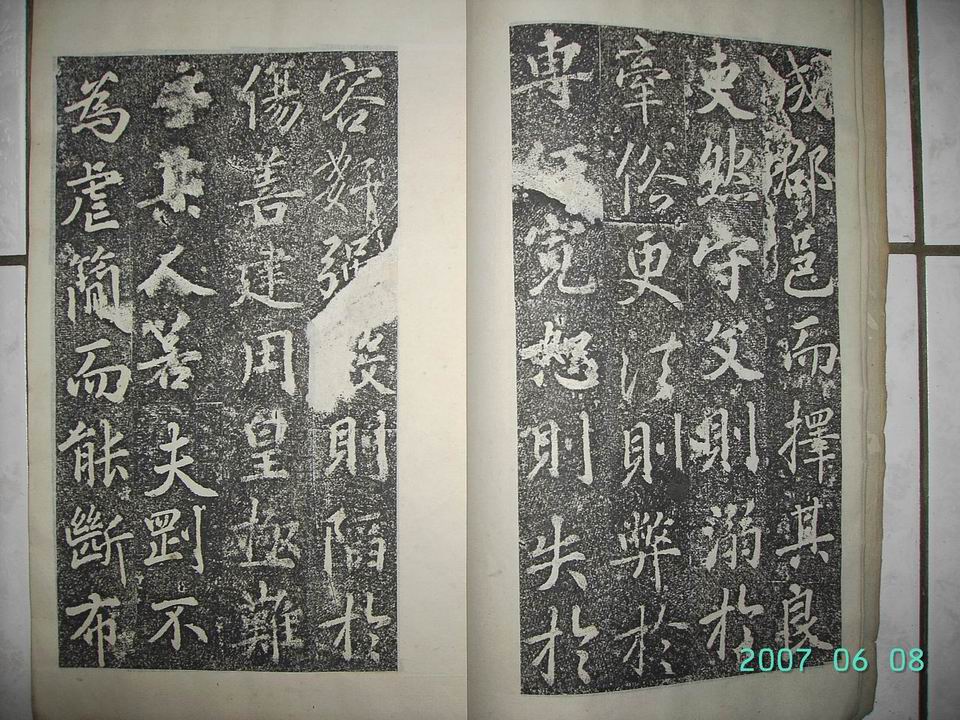 郡邑而擇其良
吏然守文則溺於
牽俗更法則弊於
專任寬恕則失於
容姧強則陷於
傷善建用皇極難
乎其人若夫剛不
為虐簡而能斷布
2007 06 08